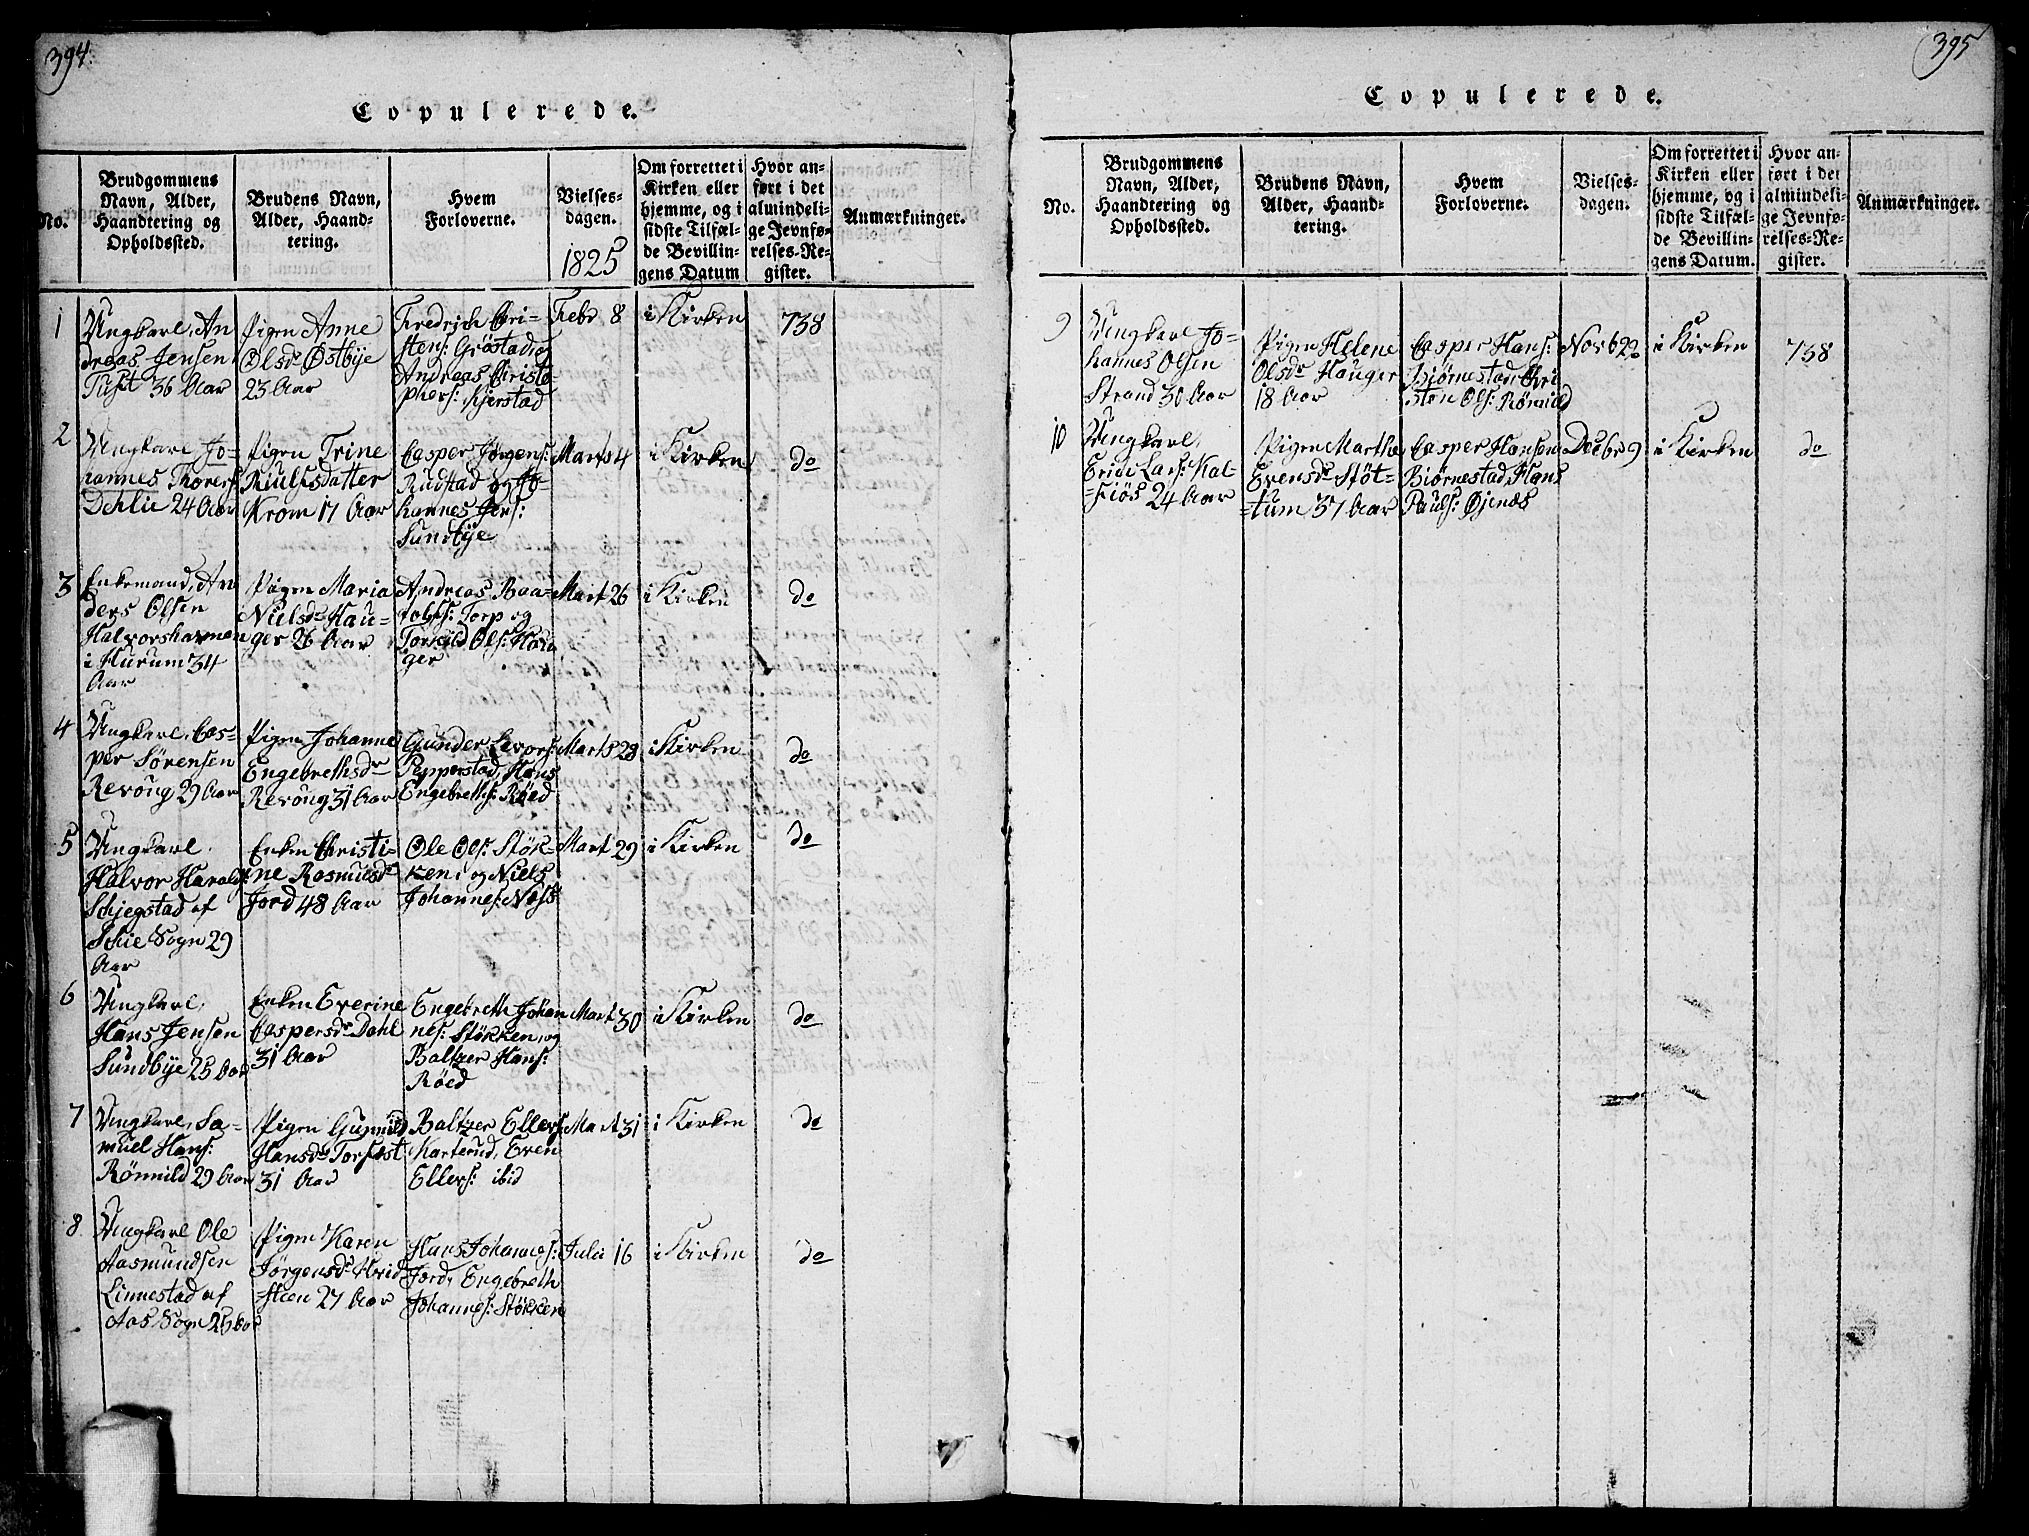 394.
Copulerede.
No.
Brudgommens
Navn, Alder,
Haandtering og
Opholdssted.
Brudens Navn,
Alder, Haand-
tering.
Hvem
Forloverne.
Vielses-
dagen.
1825
Om forrettet i
Kirken eller
hjemme, og i
sidste Tilfæl-
de Bevillin-
gens Datum
Hvor an-
ført i det
almindeli-
ge Jevnfø-
relses-Re-
gister.
Anmærkninger.
1
Ungkarl, An
dreas Jensen
36 Aar
Pigen Anne
Olsdr Østbye
23 Aar
Fredrich Cri-
stens: Gröstad, og
Andreas Christo-
phers: Kjerstad
Febr 8
i Kirken
738
2
Ungkarl Jo-
hannes Thorers
Dehlie 24 Aar
Pigen Trine
Riulfsdatter
Krom 17 Aar
Casper Jørgens:
Rudstad og Jo-
hannes Jens:
Sundbye
Marts 4
i Kirken
do
3
Enkemand, An
ders Olsen
Halvorshavnen
i Hurum 34
Aar
Pigen Maria
Nielsdr Hau-
ger 26 Aar
Andreas Baa-
Torp og
Torkild Ols: Hau
ger
Mart 26
i Kirken
do
4
Ungkarl, Cas-
per Sörensen
Revoug 29 Aar
Pigen Johanne
Engebrethsdr
Revoug 31 Aar
Gunder Levors:
Pepperstad, Hans
Engebreths: Röed
Marts 28
i Kirken
do
5
Ungkarl,
Halvor Harald
Schjegstad af
Schie Sogn 29
Aar
Enken Christi-
ne Rasmusdr
Jord 48 Aar
Ole Ols: Stök-
ken, og Niels
Johannes: Næss
Mart 29
i Kirken
do
6
Ungkarl,
Hans Jensen
Sundbye 25 Aar
Enken Everine
Caspersdr Dahl
31 Aar
Engebreth Johan
nes: Stökken, og
Baltzer Hans:
Röed
Mart 30
i Kirken
do
7
Ungkarl, Sa-
muel Hans:
Römild 29 Aar
Pigen Gunnild
Hansdr Torfest
31 Aar
Baltzer Ellefs:
Karterud, Even
Ellefs: ibid
Mart 31
i Kirken
do
8
Ungkarl Ole
Aasmundsen
Linnestad af
Aas Sogn 25 Aar
Pigen Karen
Jörgensdr Hvid-
steen 27 Aar
Hans Johannes:
Jord, Engebreth
Johannes: Stökken
Julii 16
i Kirken
do
395
Copulerede.
No.
Brudgommens
Navn, Alder,
Haandtering og
Opholdssted.
Brudens Navn,
Alder, Haand-
tering.
Hvem
Forloverne.
Vielses-
dagen.
Om forrettet i
Kirken eller
hjemme, og i
sidste Tilfæl-
de Bevillin-
gens Datum.
Hvor an-
ført i det
almindeli-
ge Jevnfø-
relses-Re-
gister.
Anmærkninger.
9
Ungkarl Jo-
hannes Olsen
Strand 30 Aar
Pigen Helene
Olsdr Hauger
18 Aar
Casper Hans:
Bjørnestad, Chri
sten Ols: Römild
Novb 22
i Kirken
738
10
Ungkarl,
Erik Lars: Kal-
=fiös 24 Aar
Pigen Marthe
Evensdr Stöt-
=tum 37 Aar
Casper Hansen
Biørnestad, Hans
Pauls: Øjenæs
Decbr 9
i Kirken
do